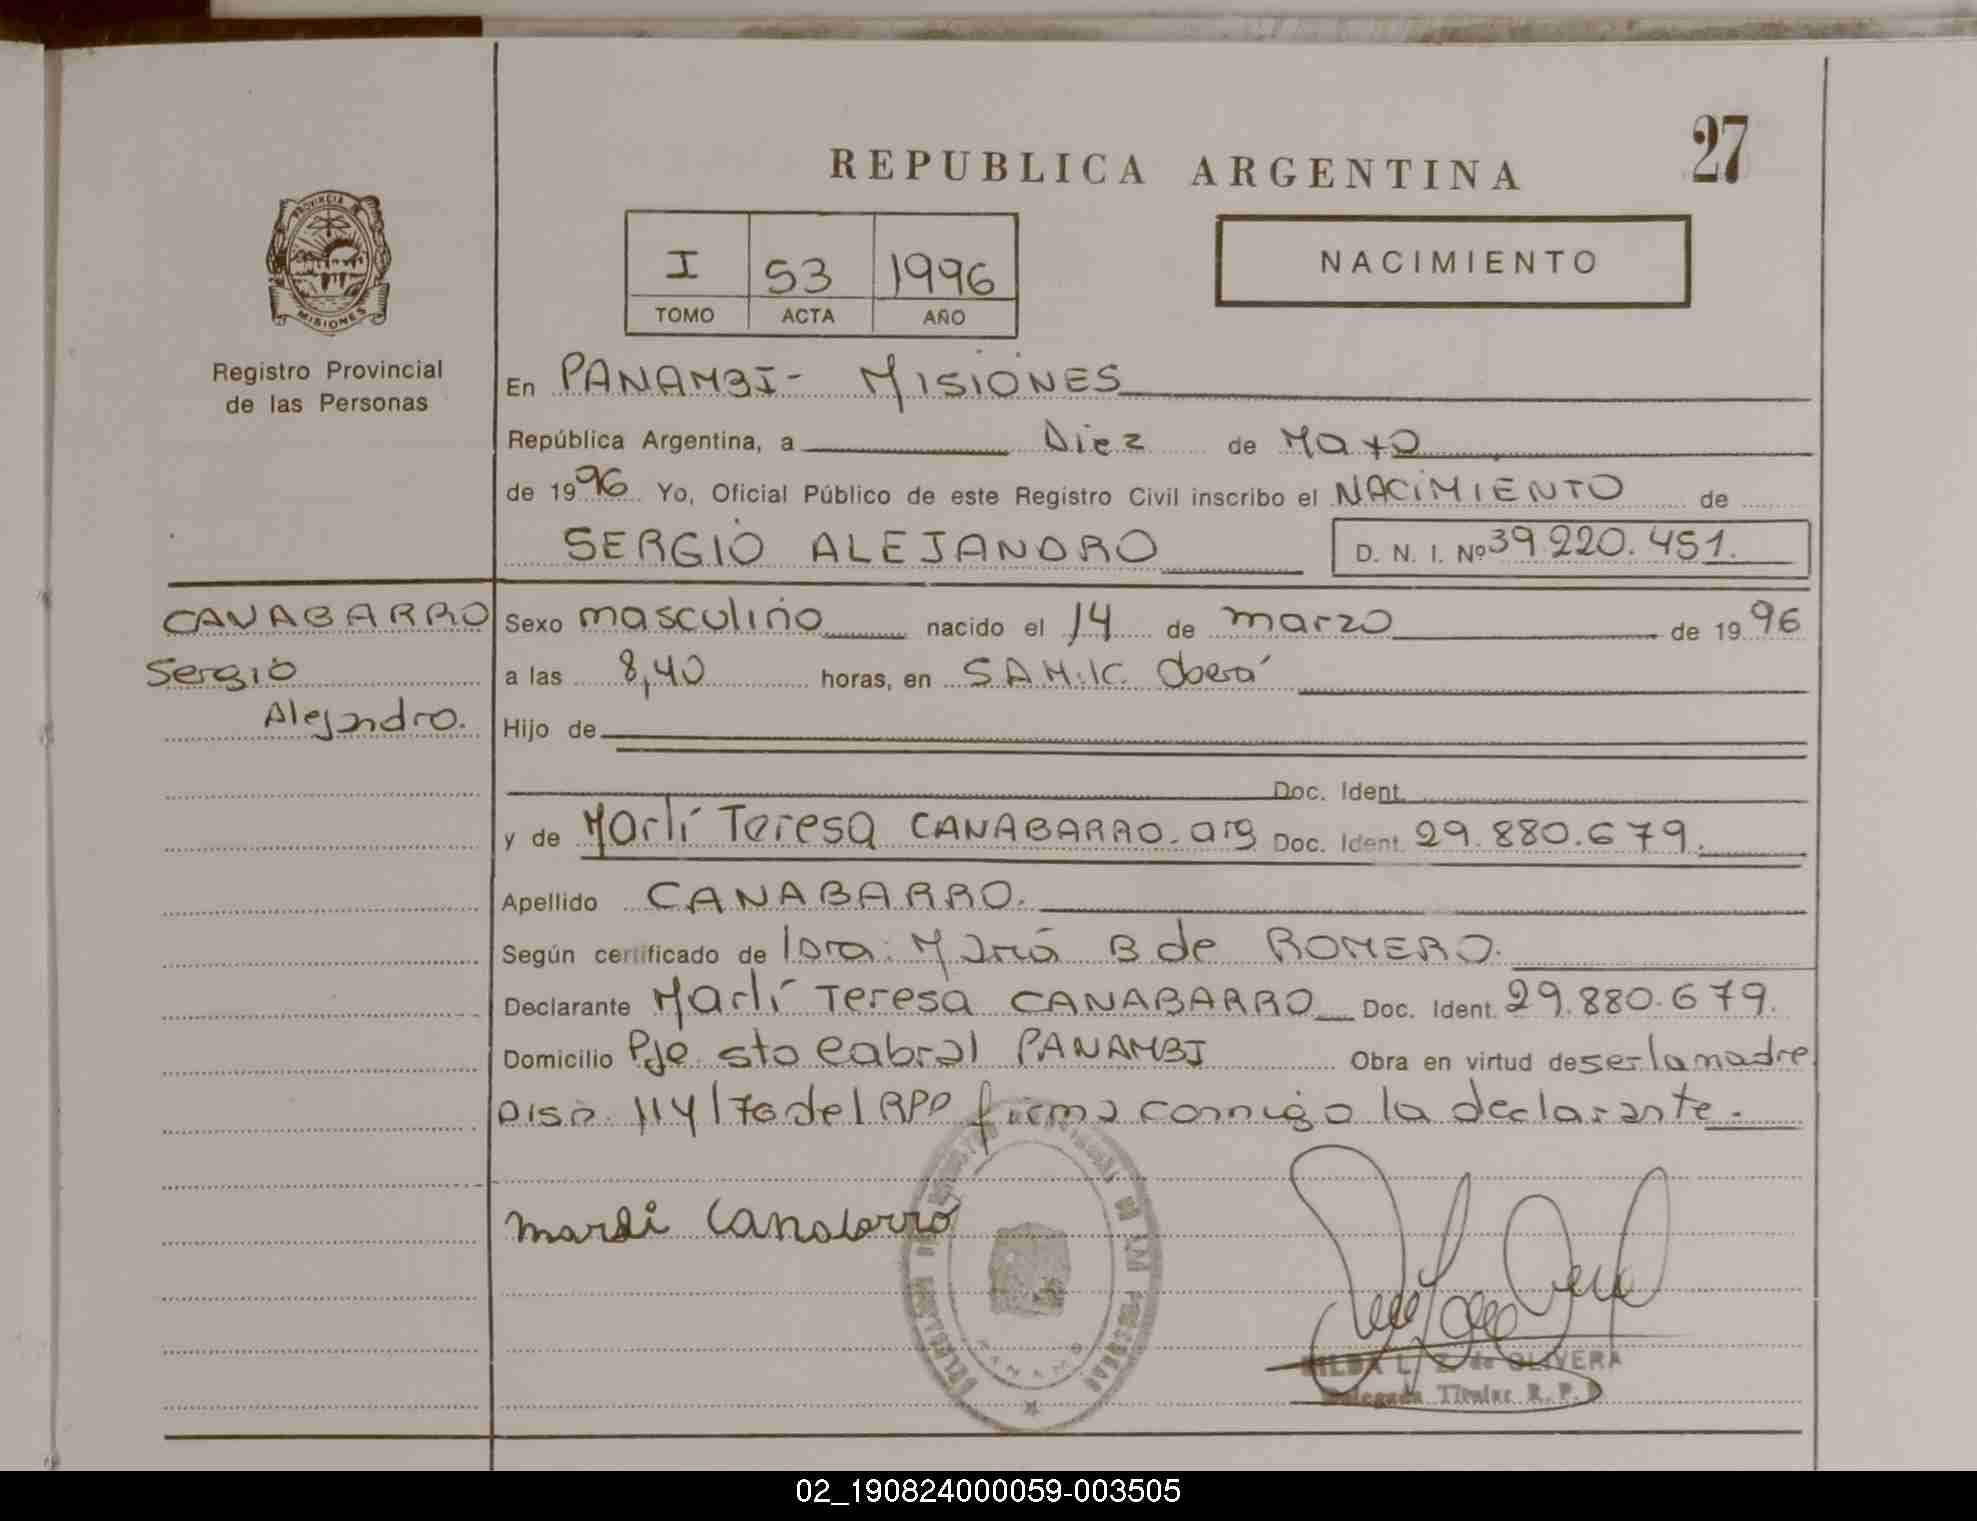 27
REPUBLICA ARGENTINA
PROVINCIA DE
MISIONES
I 53 1996
TOMO ACTA AÑO
NACIMIENTO
Registro Provincial
de las Personas
En PANAMBI - MISIONES
República Argentina, a Diez de Mayo
de 1996 Yo, Oficial Público de este Registro Civil inscribo el NACIMIENTO de
SERGIO ALEJANDRO D. N. I. Nº 39.220.451.
CANABARRO
Sergio
Alejandro.
Sexo masculino nacido el 14 de marzo de 1996
a las 8,40 horas, en S.A.M.I.C. Oberá
Hijo de
Doc. Ident.
y de Marlí Teresa CANABARRO. arg Doc. Ident. 29.880.679.
Apellido CANABARRO.
Según certificado de María B de ROMERO.
Declarante Marlí Teresa CANABARRO Doc. Ident. 29.880.679.
Domicilio Pje sto Cabral PANAMBI Obra en virtud de ser la madre
Disp. 114/76 del RPP firma conmigo la declarante.
Marli Canabarro
L. Z. de OLIVERA
Delegada Titular R. P. P.
02_190824000059-003505